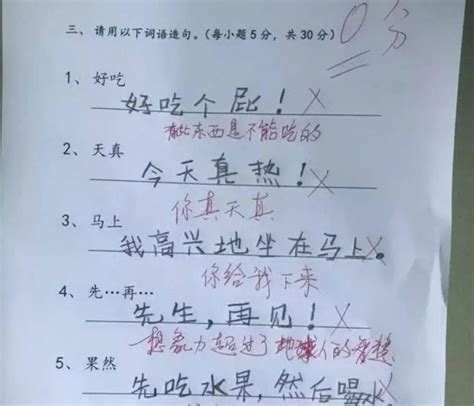 三、请用以下词语造句。(每小题5分，共30分)
0分
1、好吃
好吃个屁！×
有些东西是不能吃的
2、天真
今天真热！×
你真天真
3、马上
我高兴地坐在马上。×
你给我下来
4、先…再…
先生，再见！×
想象力超过了地球人的智慧
5、果然
先吃水果，然后喝